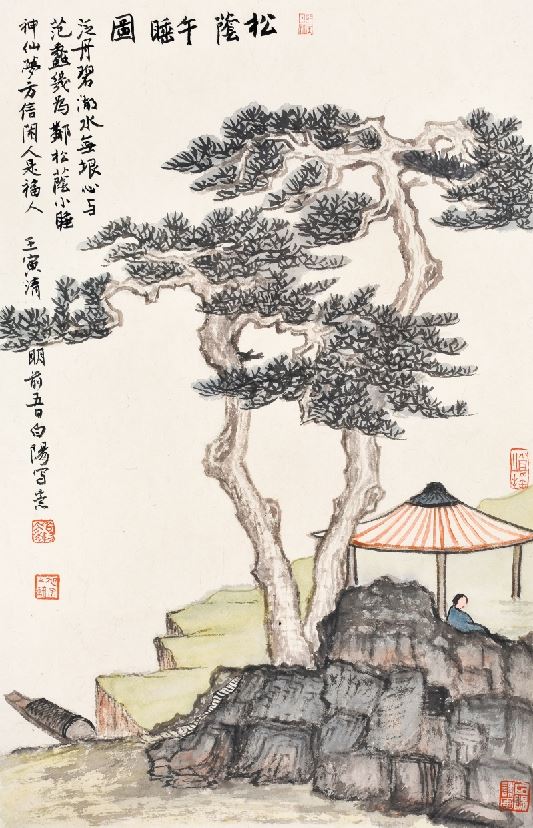 松蔭午睡圖
泛舟碧湖水無垠心与
范蠡幾為鄰松蔭小睡
神仙夢方信閑人是福人 壬寅清明前五日白陽寫意